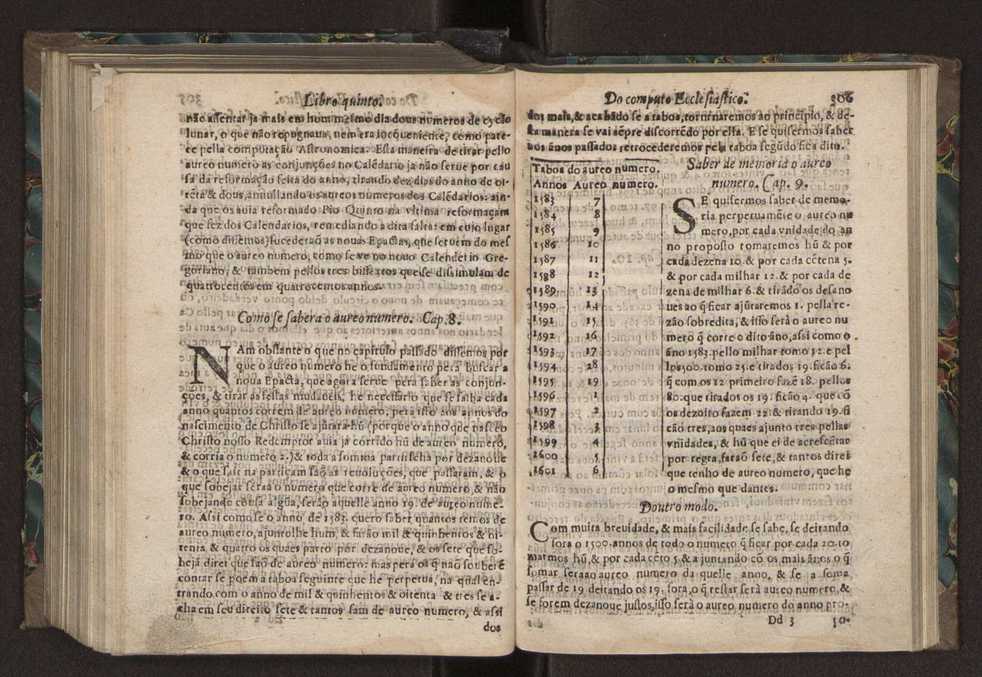 Libro quinto.
não assentar ja mais em hum mesmo dia dous numeros de cyclo
lunar, o que não repugnaua, nem era incoueniente, como pare-
ce pella computação Astronomica. Esta maneira de tirar pello
aureo numero as conjunções no Calẽdario ja não serue por cau
sa da reformação feita do anno, tirando dez dias do anno de oi-
tẽta & dous, annullando os aureos numeros dos Calẽdarios: ain-
da que os auia reformado Pio Quinto na vltima reformaçam
que fez dos Calendarios, remediando a dita falta: em cujo lugar
(como dissemos) sucederaõ as nouas Epactas, que seruem do mes
mo que o aureo numero, como se ve no nouo Calendario Gre-
goriano, & tambem pellos tres bissextos que se dissimulam de
quatrocentos em quatrocentos annos.
Como se sabera o aureo numero. Cap. 8.
NAm obstante o que no capitulo passado dissemos por
que o aureo numero he o fundamento pera buscar a
noua Epacta, que agora serue pera saber as conjun-
ções, & tirar as festas mudaueis, he necessario que se saiba cada
anno quantos correm de aureo numero, pera isso aos annos do
nascimento de Christo se ajũtara hũ (porque o anno que nasceo
Christo nosso Redemptor auia ja corrido hũ de aureo numero,
& corria o numero 2.) & toda a somma partirseha por dezanoue
& o que sair na particam saõ as reuoluções, que passaram, & o
que sobejar seraa o numero que corre de aureo numero, & não
sobejando cousa algũa, serão aquelle anno 19. de aureo nume-
ro. Assi como se o anno de 1583. quero saber quantos temos de
aureo numero, ajuntolhe hum, & farão mil & quinhentos & oi-
tenta, & quatro os quaes parto por dezanoue, & os sete que so-
beja direi que saõ de aureo numero: mas pera os q̃ não souberẽ
contar se poem a taboa seguinte que he perpetua, na qual en-
trando com o anno de mil & quinhentos & oitenta & tres se a-
cha em seu direito sete & tantos sam de aureo numero, & assi
dos
Do computo Ecclesiastico. 306
dos mais, & acabãdo se a taboa, tornaremos ao principio, & de-
sta maneira se vai sẽpre discorrẽdo por ella. E se quisermos saber
aos ãnos passados retrocederemos pela taboa segũdo fica dito.
Taboa do aureo numero.
Annos Aureo numero.
1583 7
1584 8
1585 9
1586 10
1587 11
1588 12
1589 13
1590 14
1591 15
1592 16
1593 17
1594 18
1595 19
1596 1
1597 2
1598 3
1599 4
1600 5
1601 6
Saber de memoria o aureo
numero. Cap. 9.
SE quisermos saber de memo-
ria perpetuamẽte o aureo nu
mero, por cada vnidade do an
no proposto tomaremos hũ & por
cada dezena 10. & por cada cẽtena 5.
& por cada milhar 12. & por cada de
zena de milhar 6. & tirãdo os dẽsano
ues ao q̃ ficar ajũtaremos 1. pella re-
zão sobredita, & isso serà o aureo nu
mero q̃ corre o dito ãno, assi como o
ãno 1583. pello milhar tomo 12. e pel
los 500. tomo 25. e tirados 19. ficão 6.
q̃ com os 12 primeiro fazẽ 18. pellos
80. que tirados os 19: ficão 4. que cõ
os dezoito fazem 22: & tirando 19. fi
cão tres, aos quaes ajunto tres pellas
vnidades, & hũ que ei de acrescẽtar
por regra, farão sete, & tantos direi
que tenho de aureo numero, que he
o mesmo que dantes.
Doutro modo.
Com muita breuidade, & mais facilidade se sabe, se deitando
fora o 1500. annos de todo o numero q̃ ficar por cada 20. to
marmos hũ, & por cada cẽto 5. & a juntando cõ os mais ãnos o q̃
somar seraa o aureo numero da quelle anno, & se a soma
passar de 19 deitando os 19. fora, o q̃ restar serà aureo numero, &
se forem dezanoue justos, isso serà o aureo numero do anno pro-
Dd 3 po-